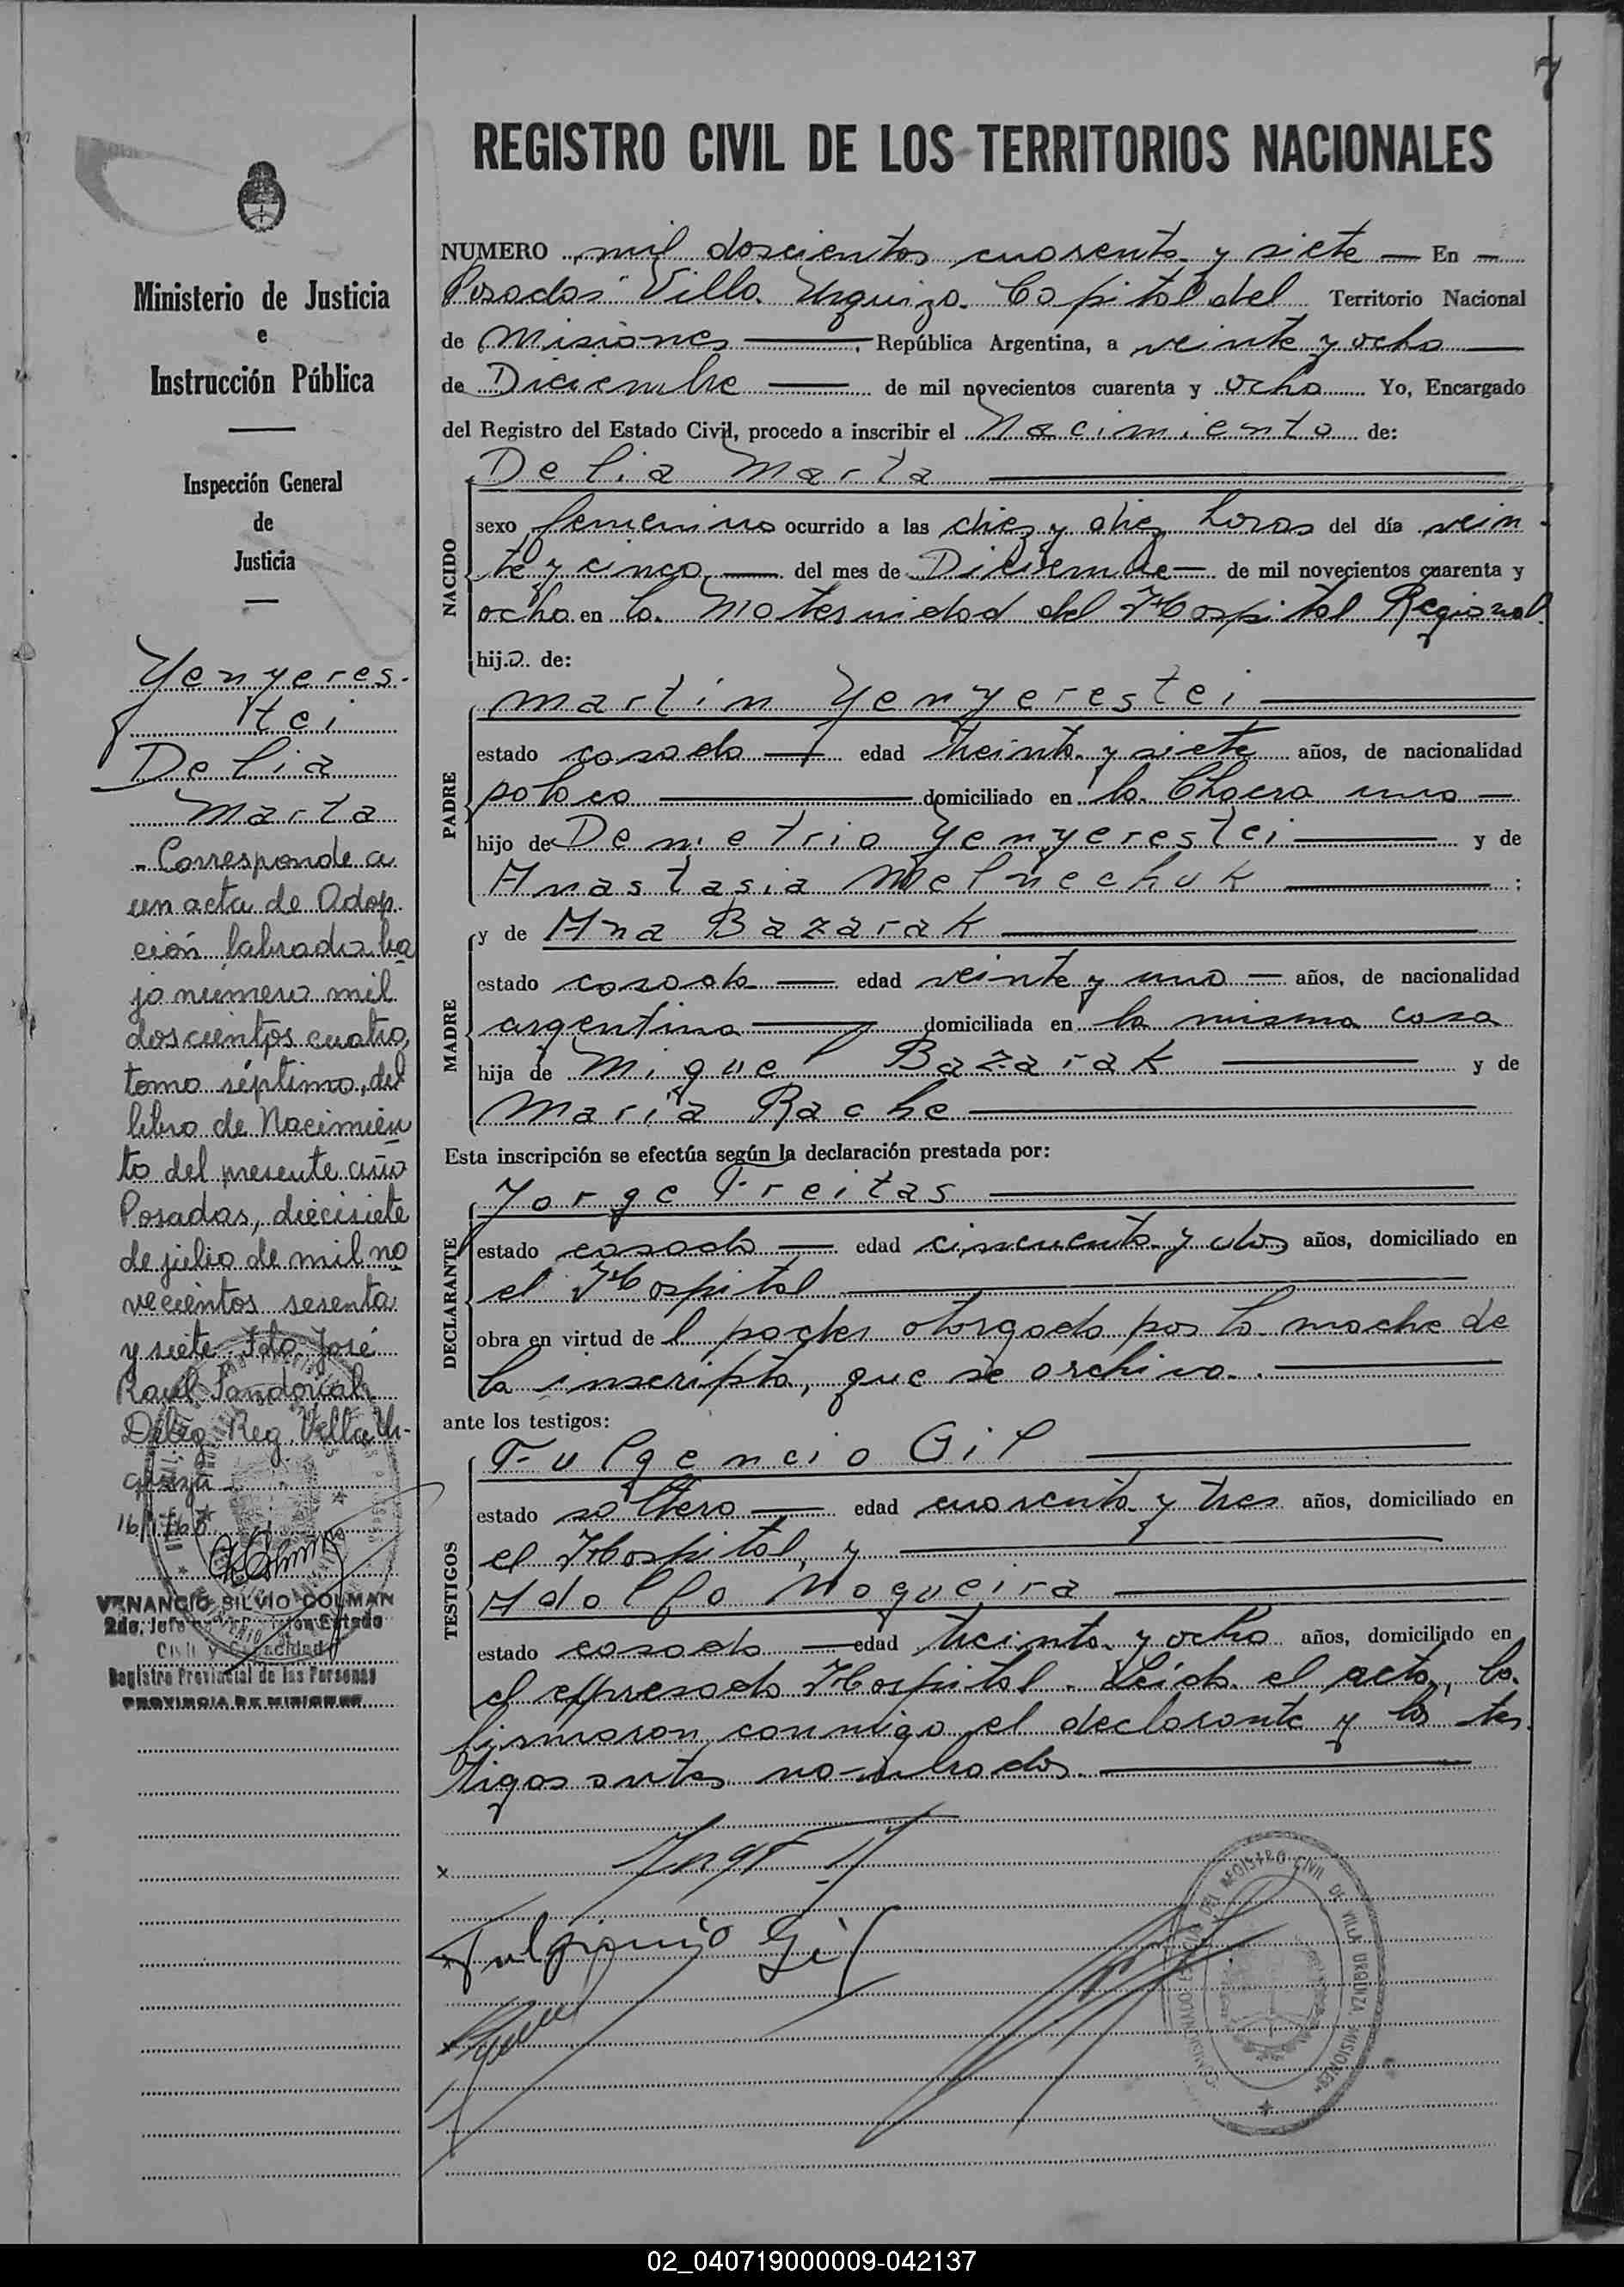 7
REGISTRO CIVIL DE LOS TERRITORIOS NACIONALES
Ministerio de Justicia
e
Instrucción Pública
Inspección General
de
Justicia
Yenyeres-
tei
Delia
Marta
- Corresponde a
un acta de Adop
ción labrada ba
jo número mil
doscientos cuatro,
tomo séptimo, del
libro de Nacimien
to del presente año
Posadas, diecisiete
de julio de mil no
vecientos sesenta
y siete Fdo. José
Raúl Sandoval
Deleg. Reg. Villa Ur-
quiza
VENANCIO SILVIO COLMAN
2do. Jefe Estado
Civil y Capacidad
Registro Provincial de las Personas
PROVINCIA DE MISIONES
NUMERO mil doscientos cuarenta y siete — En —
Posadas Villa Urquiza Capital del Territorio Nacional
de Misiones — República Argentina, a veinte y ocho —
de Diciembre — de mil novecientos cuarenta y ocho Yo, Encargado
del Registro del Estado Civil, procedo a inscribir el Nacimiento de:
Delia Marta
NACIDO
sexo femenino ocurrido a las diez y diez horas del día vein
te y cinco — del mes de Diciembre — de mil novecientos cuarenta y
ocho en la Maternidad del Hospital Regional
hija de:
Martín Yenyerestei
PADRE
estado casado — edad treinta y siete años, de nacionalidad
polaco — domiciliado en la Chacra uno —
hijo de Demetrio Yenyerestei — y de
Anastasia Melnechuk — ;
y de Ana Bazarak
MADRE
estado casada — edad veinte y uno — años, de nacionalidad
argentina — domiciliada en la misma casa
hija de Miguel Bazarak — y de
María Rache
Esta inscripción se efectúa según la declaración prestada por:
Jorge Freitas
DECLARANTE
estado casado — edad cincuenta y dos años, domiciliado en
el Hospital
obra en virtud de l poder otorgado por la madre de
la inscripta, que se archiva.
ante los testigos:
Fulgencio Gil
TESTIGOS
estado soltero — edad cuarenta y tres años, domiciliado en
el Hospital, y
Adolfo Nogueira
estado casado — edad treinta y ocho años, domiciliado en
el expresado Hospital. Leída el acta, la
firmaron conmigo el declarante y los tes
tigos antes nombrados.
Fulgencio Gil
DEL REGISTRO CIVIL DE VILLA URQUIZA "MISIONES"
02_040719000009-042137